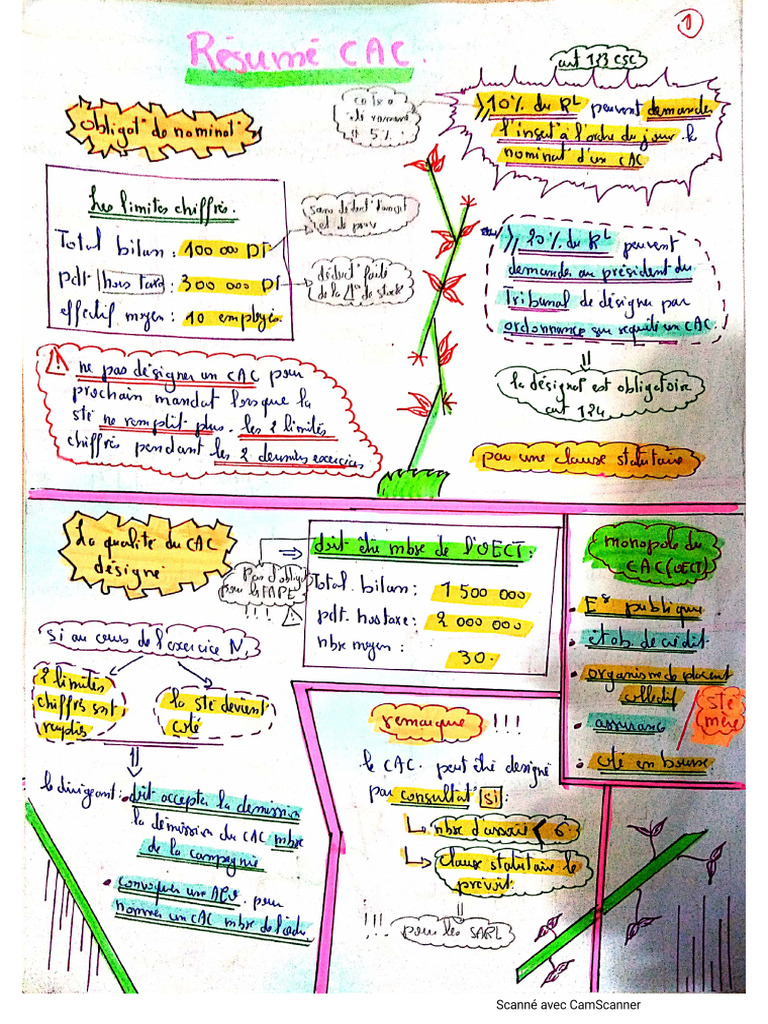 1
Résumé CAC.
obligat° de nominat°
Les limites chiffrés.
Total bilan : 100 000 DT
pdt hors taxe : 300 000 DT
effectif moyen : 10 employés.
ce taux a
été ramené
à 5%
déduct° faite
de la Δ° de stock
art 123 CSC
⩾ 10% du KL peuvent demander
l'inset° à l'ordre du jour la
nominat° d'un CAC
⩾ 20% du KL peuvent
demander au président du
Tribunal de désigner par
ordonnance sur requête un CAC.
⇓
la désignat° est obligatoire
art 124.
par une clause statutaire
⚠ ne pas désigner un CAC pour
prochain mandat lorsque la
sté ne remplit plus les 2 limites
chiffrés pendant les 2 derniers exercices
La qualité du CAC
désigné
⇒ doit être mbre de l'OECT :
pas d'obligat°
pour les FAPE
!!! ⚠
Total bilan : 1 500 000
pdt. hors taxe : 2 000 000
nbre moyen : 30.
monopole du
CAC (OECT)
. Ese publique
. étab. de crédit
. organisme de placent
collectif
. assurance
. coté en bourse
Sté
mère
si au cours de l'exercice N,
2 limites
chiffrés sont
remplies
la sté devient
coté
⇓
le dirigeant : . doit accepter la démission
la démission du CAC mbre
de la compagnie
. convoquer une AGO pour
nommer un CAC mbre de l'ordre.
remarque !!!
le CAC peut être désigné
par consultat° si :
nbre d'associé < 6.
clause statutaire le
prévoit.
⇓
!!! pour les SARL
Scanné avec CamScanner